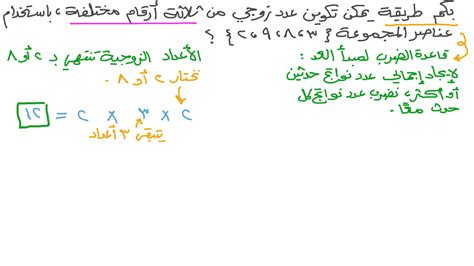 بكم طريقة يمكن تكوين عدد زوجي من ثلاثة أرقام مختلفة، باستخدام
عناصر المجموعة {٢،٩،٨،٣} ؟
قاعدة الضرب لمبدأ العد:
لإيجاد إجمالي عدد نواتج حدثين
أو أكثر، نضرب عدد نواتج كل
حدث معًا.
الأعداد الزوجية تنتهي بـ ٢ أو ٨
نختار ٢ أو ٨.
١٢ = ٢ × ٣ × ٢
يتبقى ٣ أعداد